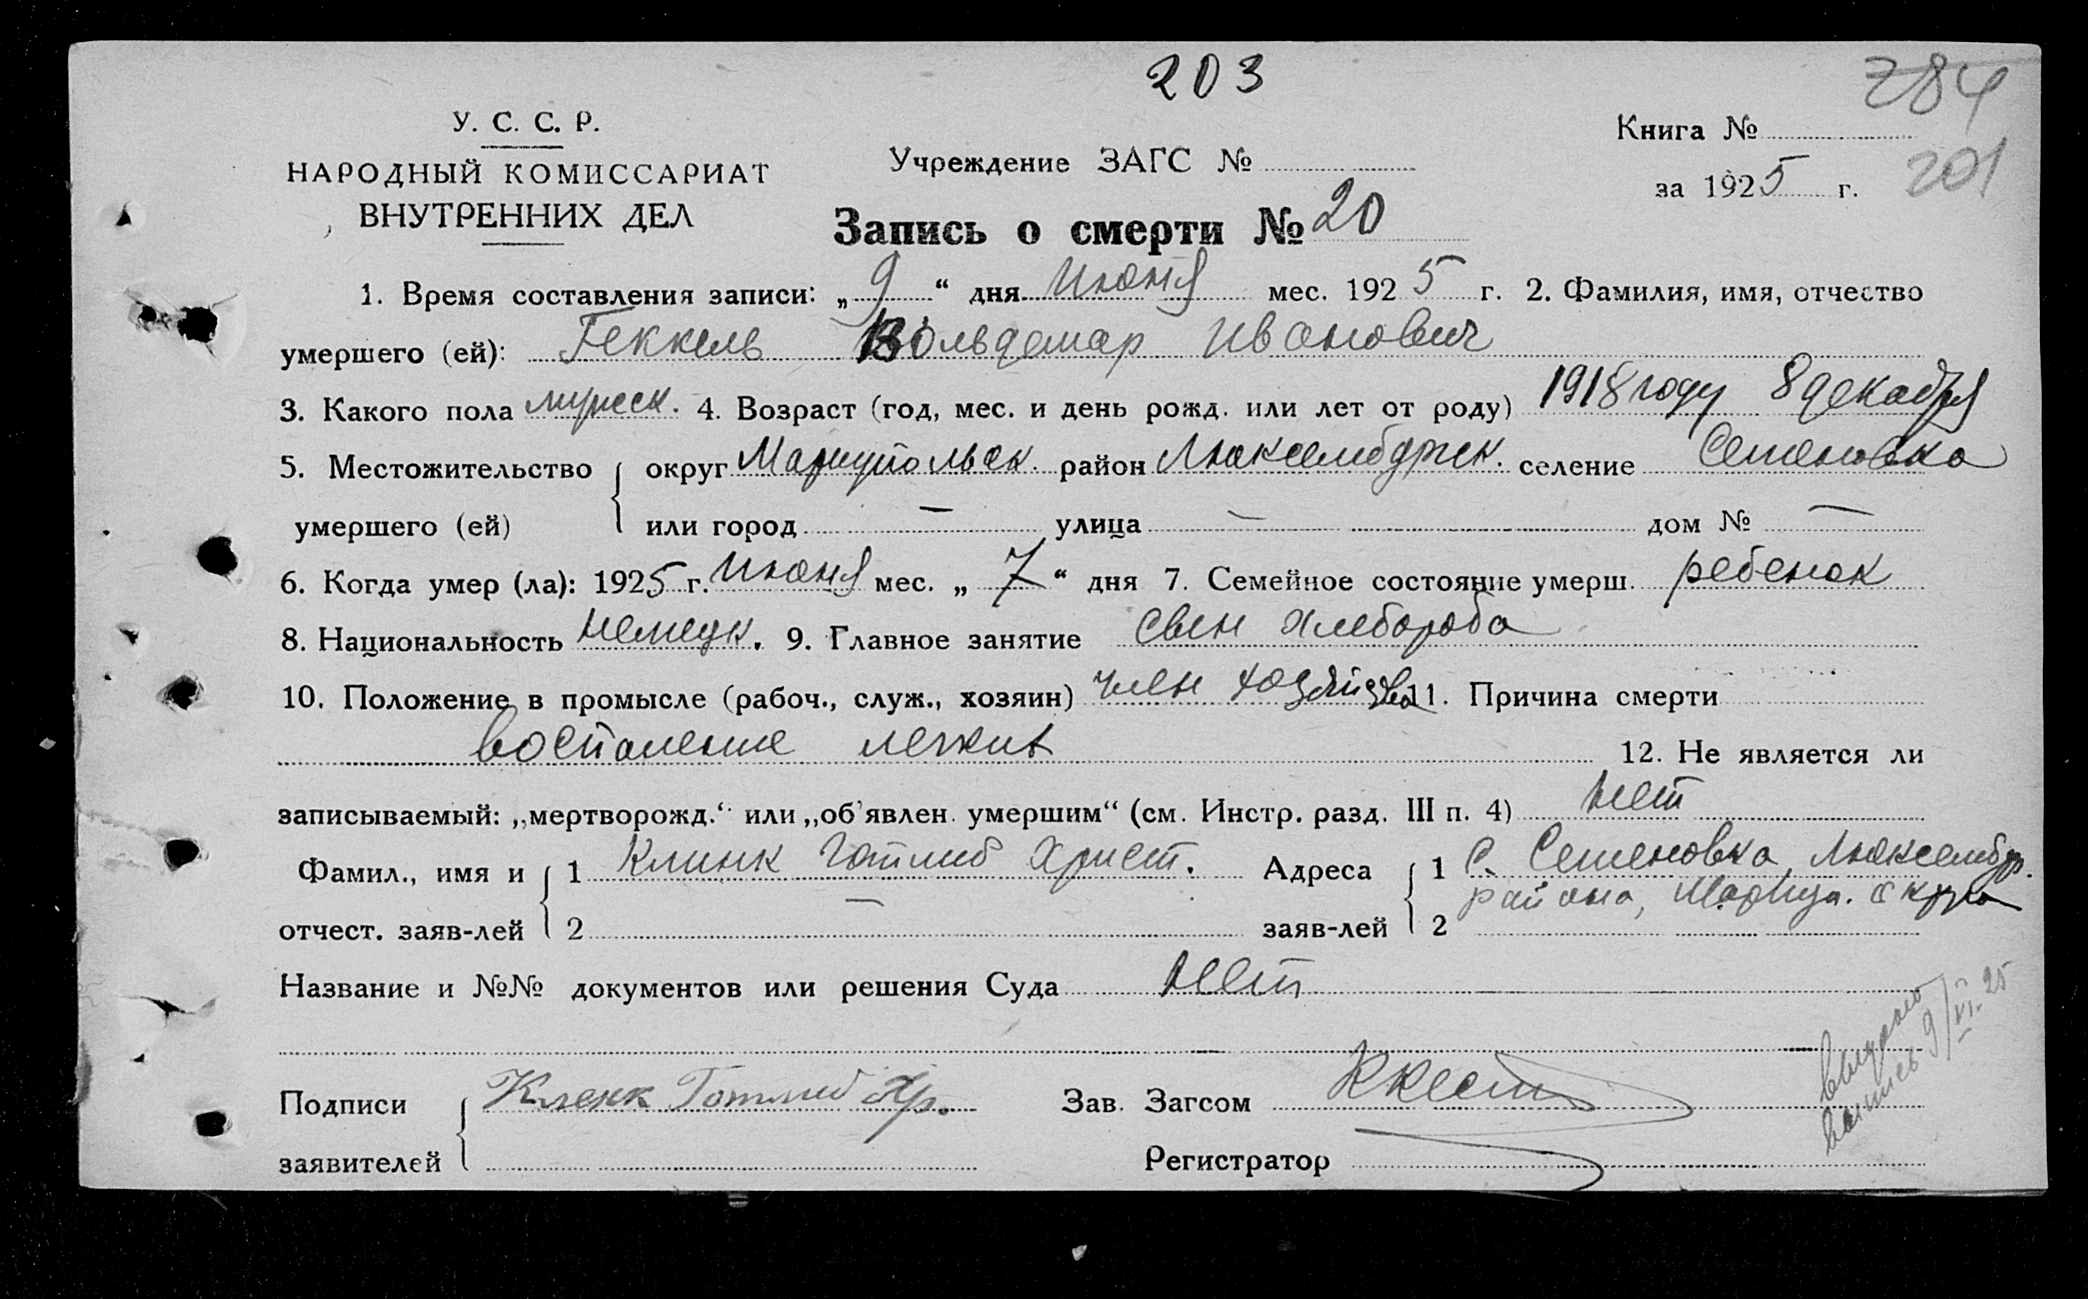 203
284
У. С. С. Р.
Книга №
НАРОДНЫЙ КОМИССАРИАТ
Учреждение ЗАГС №
201
за 1925 г.
ВНУТРЕННИХ ДЕЛ
Запись о смерти № 20
1. Время составления записи: „9“ дня Июня мес. 1925 г. 2. Фамилия, имя, отчество
умершего (ей): Геккель Вольдемар Иванович
3. Какого пола мужеск. 4. Возраст (год, мес. и день рожд. или лет от роду) 1918 году 8 декабря
5. Местожительство округ Мариупольск. район Люксембржск. селение Семеновка
умершего (ей) или город — улица — дом № —
6. Когда умер (ла): 1925 г. Июня мес. „7“ дня 7. Семейное состояние умерш. ребенок
8. Национальность немецк. 9. Главное занятие хлебороба
10. Положение в промысле (рабоч., служ., хозяин) член хозяйства 11. Причина смерти
воспаление легких 12. Не является ли
записываемый: „мертворожд.“ или „об'явлен. умершим“ (см. Инстр. разд. III п. 4) нет
Фамил., имя и 1 Клинк Готлиб Христ. Адреса 1 С. Семеновка, Люксембр.
района, Мариуп. округа
отчест. заяв-лей 2 — заяв-лей 2
Название и №№ документов или решения Суда нет
Подписи Кленк Готлиб Хр. Зав. Загсом
заявителей Регистратор
выпись 9/VI.25